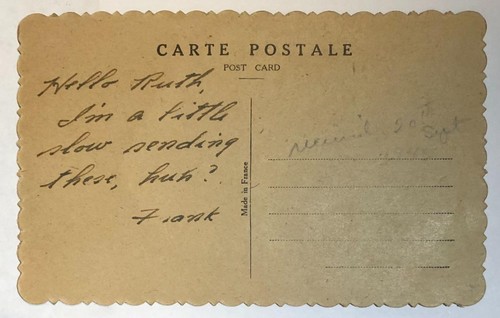 CARTE POSTALE
POST CARD
Hello Ruth,
I'm a little
slow sending
these, huh?
Frank
Made in France
20th
Sept